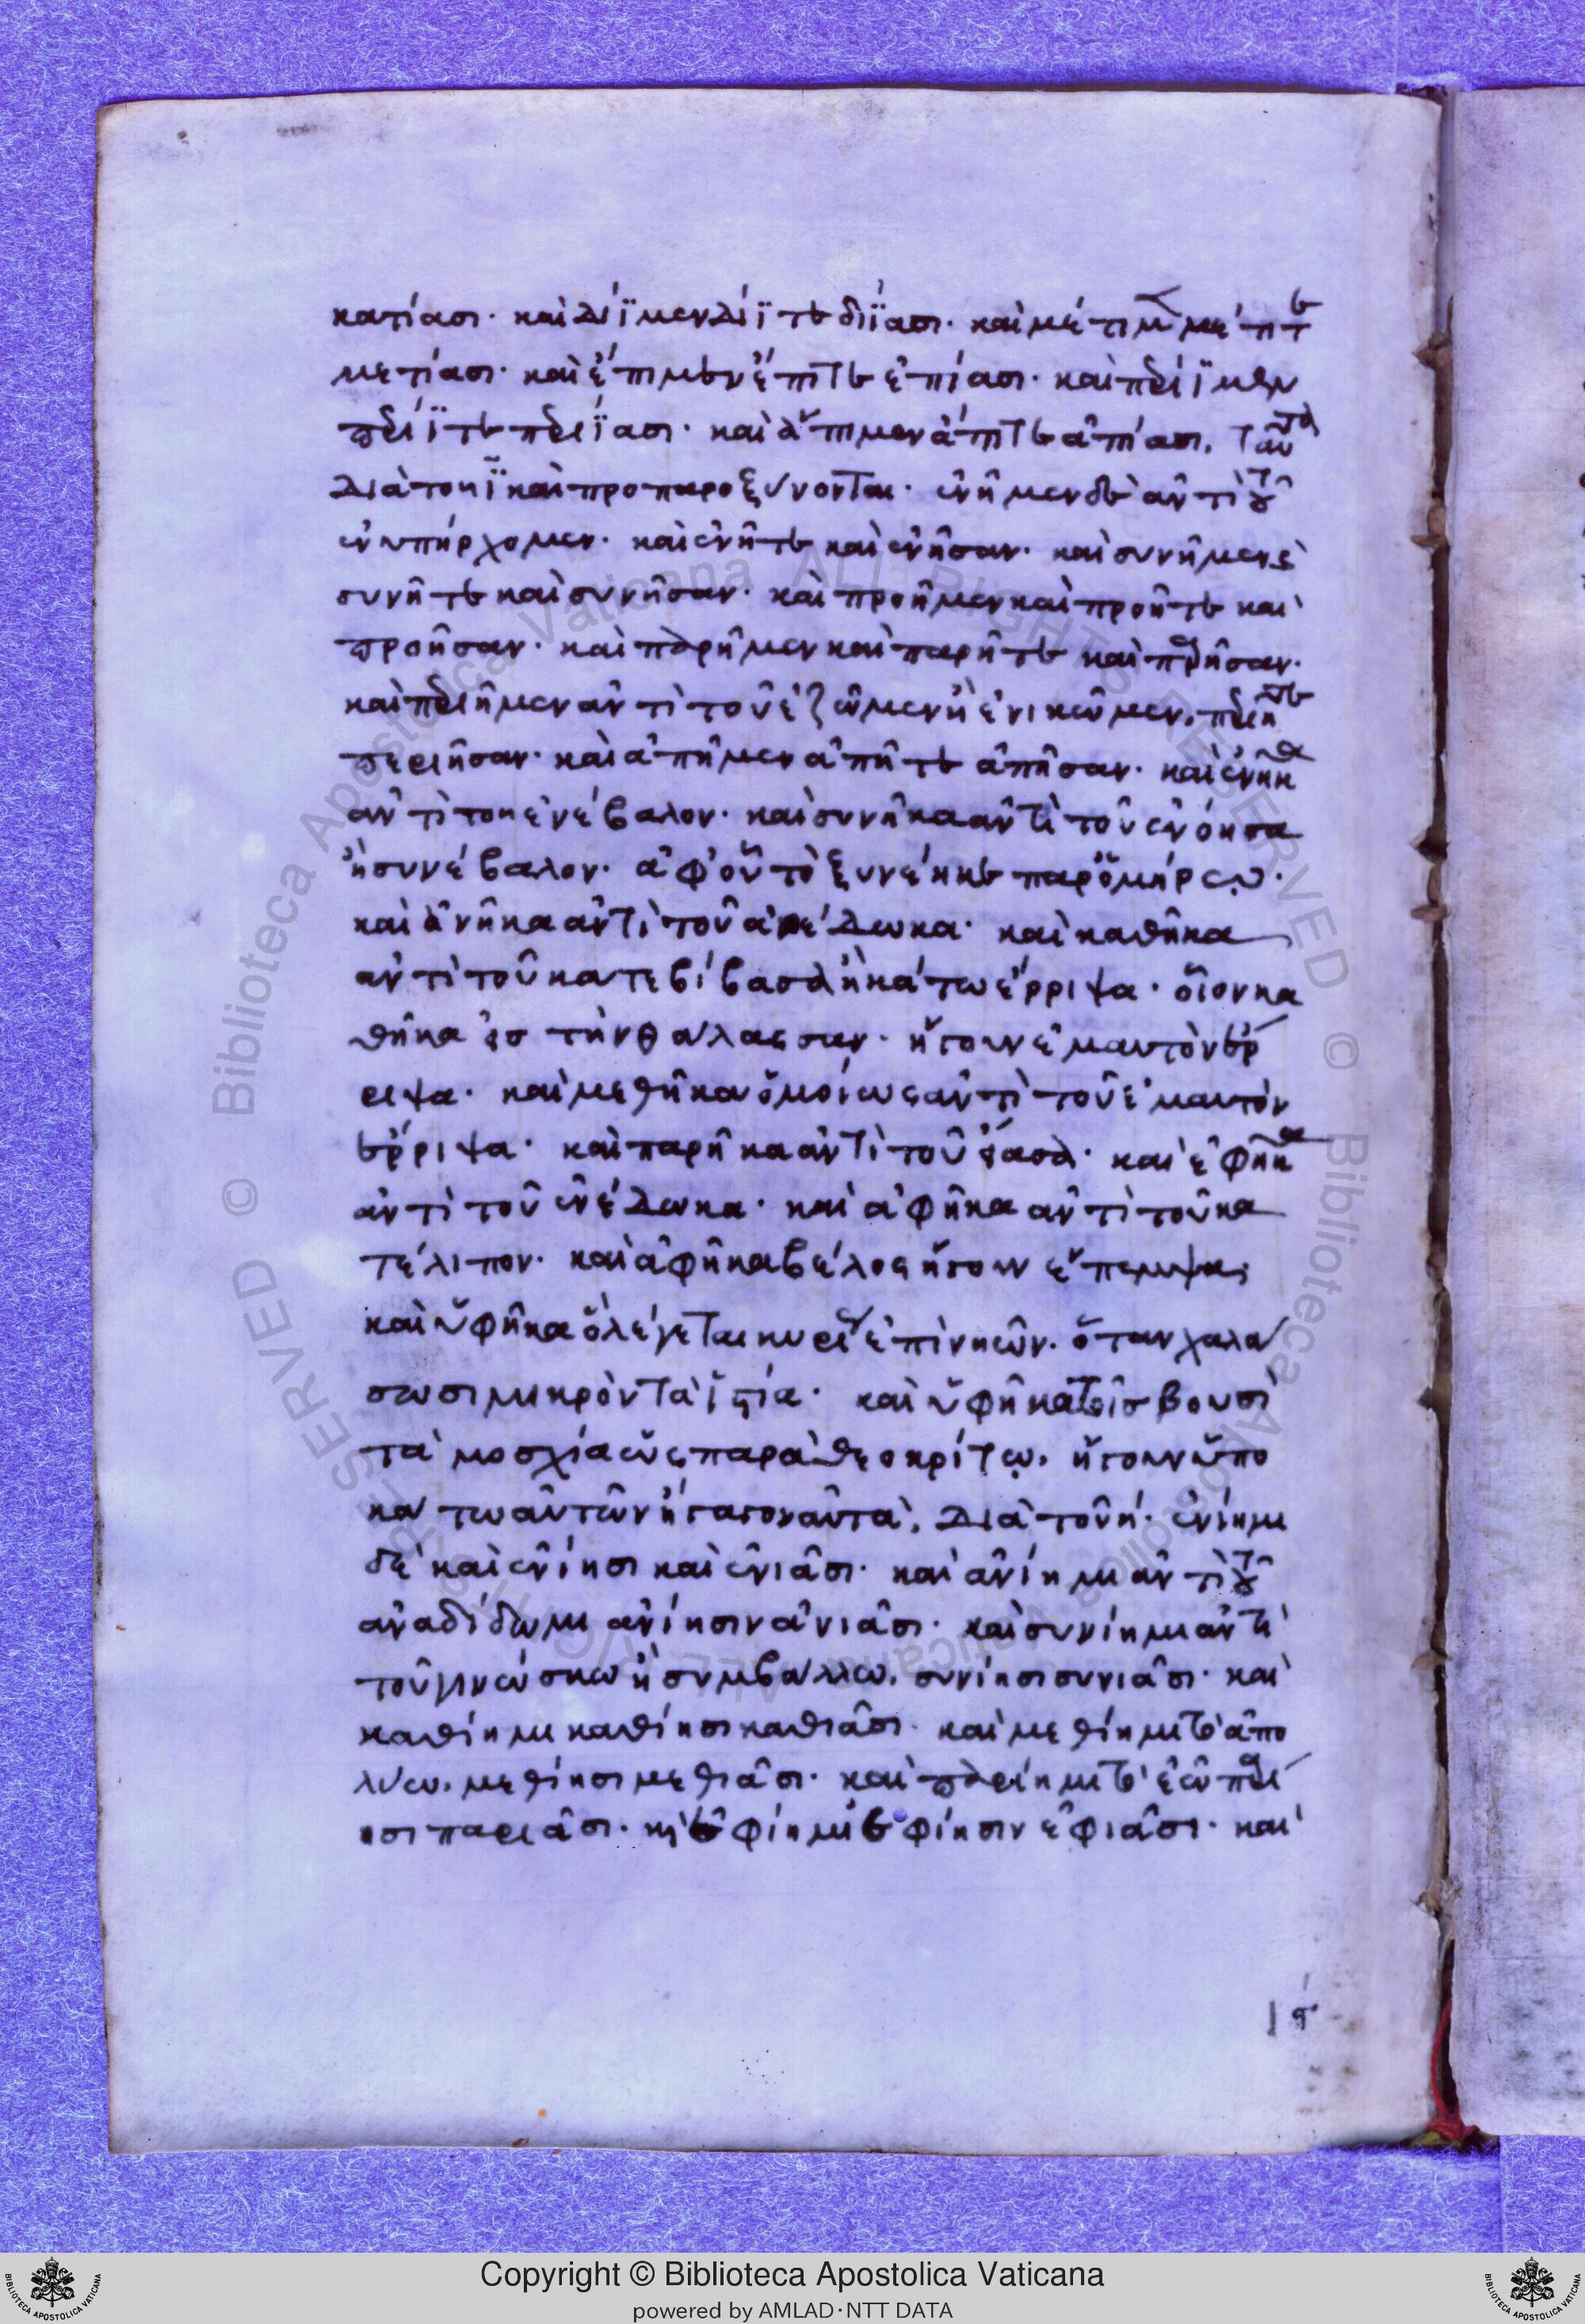 κατίασι· καὶ δίϊμεν δίϊτε διΐασι· καὶ μέτιμεν μέτιτε
μετίασι· καὶ ἔπιμεν ἔπιτε ἐπίασι· καὶ περίϊμεν
περίϊτε περιΐασι· καὶ ἄπιμεν ἄπιτε ἀπίασι. ταῦτα
διὰ τοῦ ϊ καὶ προπαροξύνονται· ἐνῆμεν δὲ ἀντὶ τοῦ
ἐνυπήρχομεν· καὶ ἐνῆτε καὶ ἐνῆσαν· καὶ συνῆμεν καὶ
συνῆτε καὶ συνῆσαν· καὶ προῆμεν καὶ προῆτε καὶ
προῆσαν· καὶ παρῆμεν καὶ παρῆτε καὶ παρῆσαν·
καὶ περιῆμεν ἀντὶ τοῦ ἐζῶμεν ἢ ἐνικῶμεν. περιῆτε
περιῆσαν· καὶ ἀπῆμεν ἀπῆτε ἀπῆσαν· καὶ ἐνῆκα
ἀντὶ τοῦ ἐνέβαλον· καὶ συνῆκα ἀντὶ τοῦ ἐνόησα
ἢ συνέβαλον· ἀφ' οὗ τὸ ξυνέηκε παρ' ὁμήρῳ·
καὶ ἀνῆκα ἀντὶ τοῦ ἀπέδωκα· καὶ καθῆκα
ἀντὶ τοῦ κατεβίβασα ἢ κάτω ἔρριψα· οἷον κα
θῆκα εἰς τὴν θάλασσαν· ἤγουν ἐμαυτὸν ἔρ
ριψα· καὶ μεθῆκα ὁμοίως ἀντὶ τοῦ ἐμαυτὸν
ἔρριψα· καὶ παρῆκα ἀντὶ τοῦ εἴασα· καὶ ἐφῆκα
ἀντὶ τοῦ ἐνέδωκα· καὶ ἀφῆκα ἀντὶ τοῦ κα
τέλιπον· καὶ ἀφῆκα βέλος ἤγουν ἔπεμψα,
καὶ ὑφῆκα ὃ λέγεται κυρίως ἐπὶ νηῶν· ὅταν χαλά
σωσι μικρὸν τὰ ἱστία· καὶ ὑφῆκα τοῖς βουσὶ
τὰ μοσχία ὡς παρὰ θεοκρίτῳ. ἤγουν ὑπο
κάτω αὐτῶν ἤγαγον αὐτά, διὰ τοῦ η· ἐνίημι
δὲ καὶ ἐνίησι καὶ ἐνιᾶσι· καὶ ἀνίημι ἀντὶ τοῦ
ἀναδίδωμι ἀνίησιν ἀνιᾶσι· καὶ συνίημι ἀντὶ
τοῦ γινώσκω ἢ συμβάλλω. συνίησι συνιᾶσι· καὶ
καθίημι καθίησι καθιᾶσι· καὶ μεθίημι τὸ ἀπο
λύω. μεθίησι μεθιᾶσι· καὶ παρίημι τὸ ἐῶ παρί
ησι παριᾶσι· καὶ ἐφίημι ἐφίησιν ἐφιᾶσι· καὶ
Copyright © Biblioteca Apostolica Vaticana
powered by AMLAD·NTT DATA